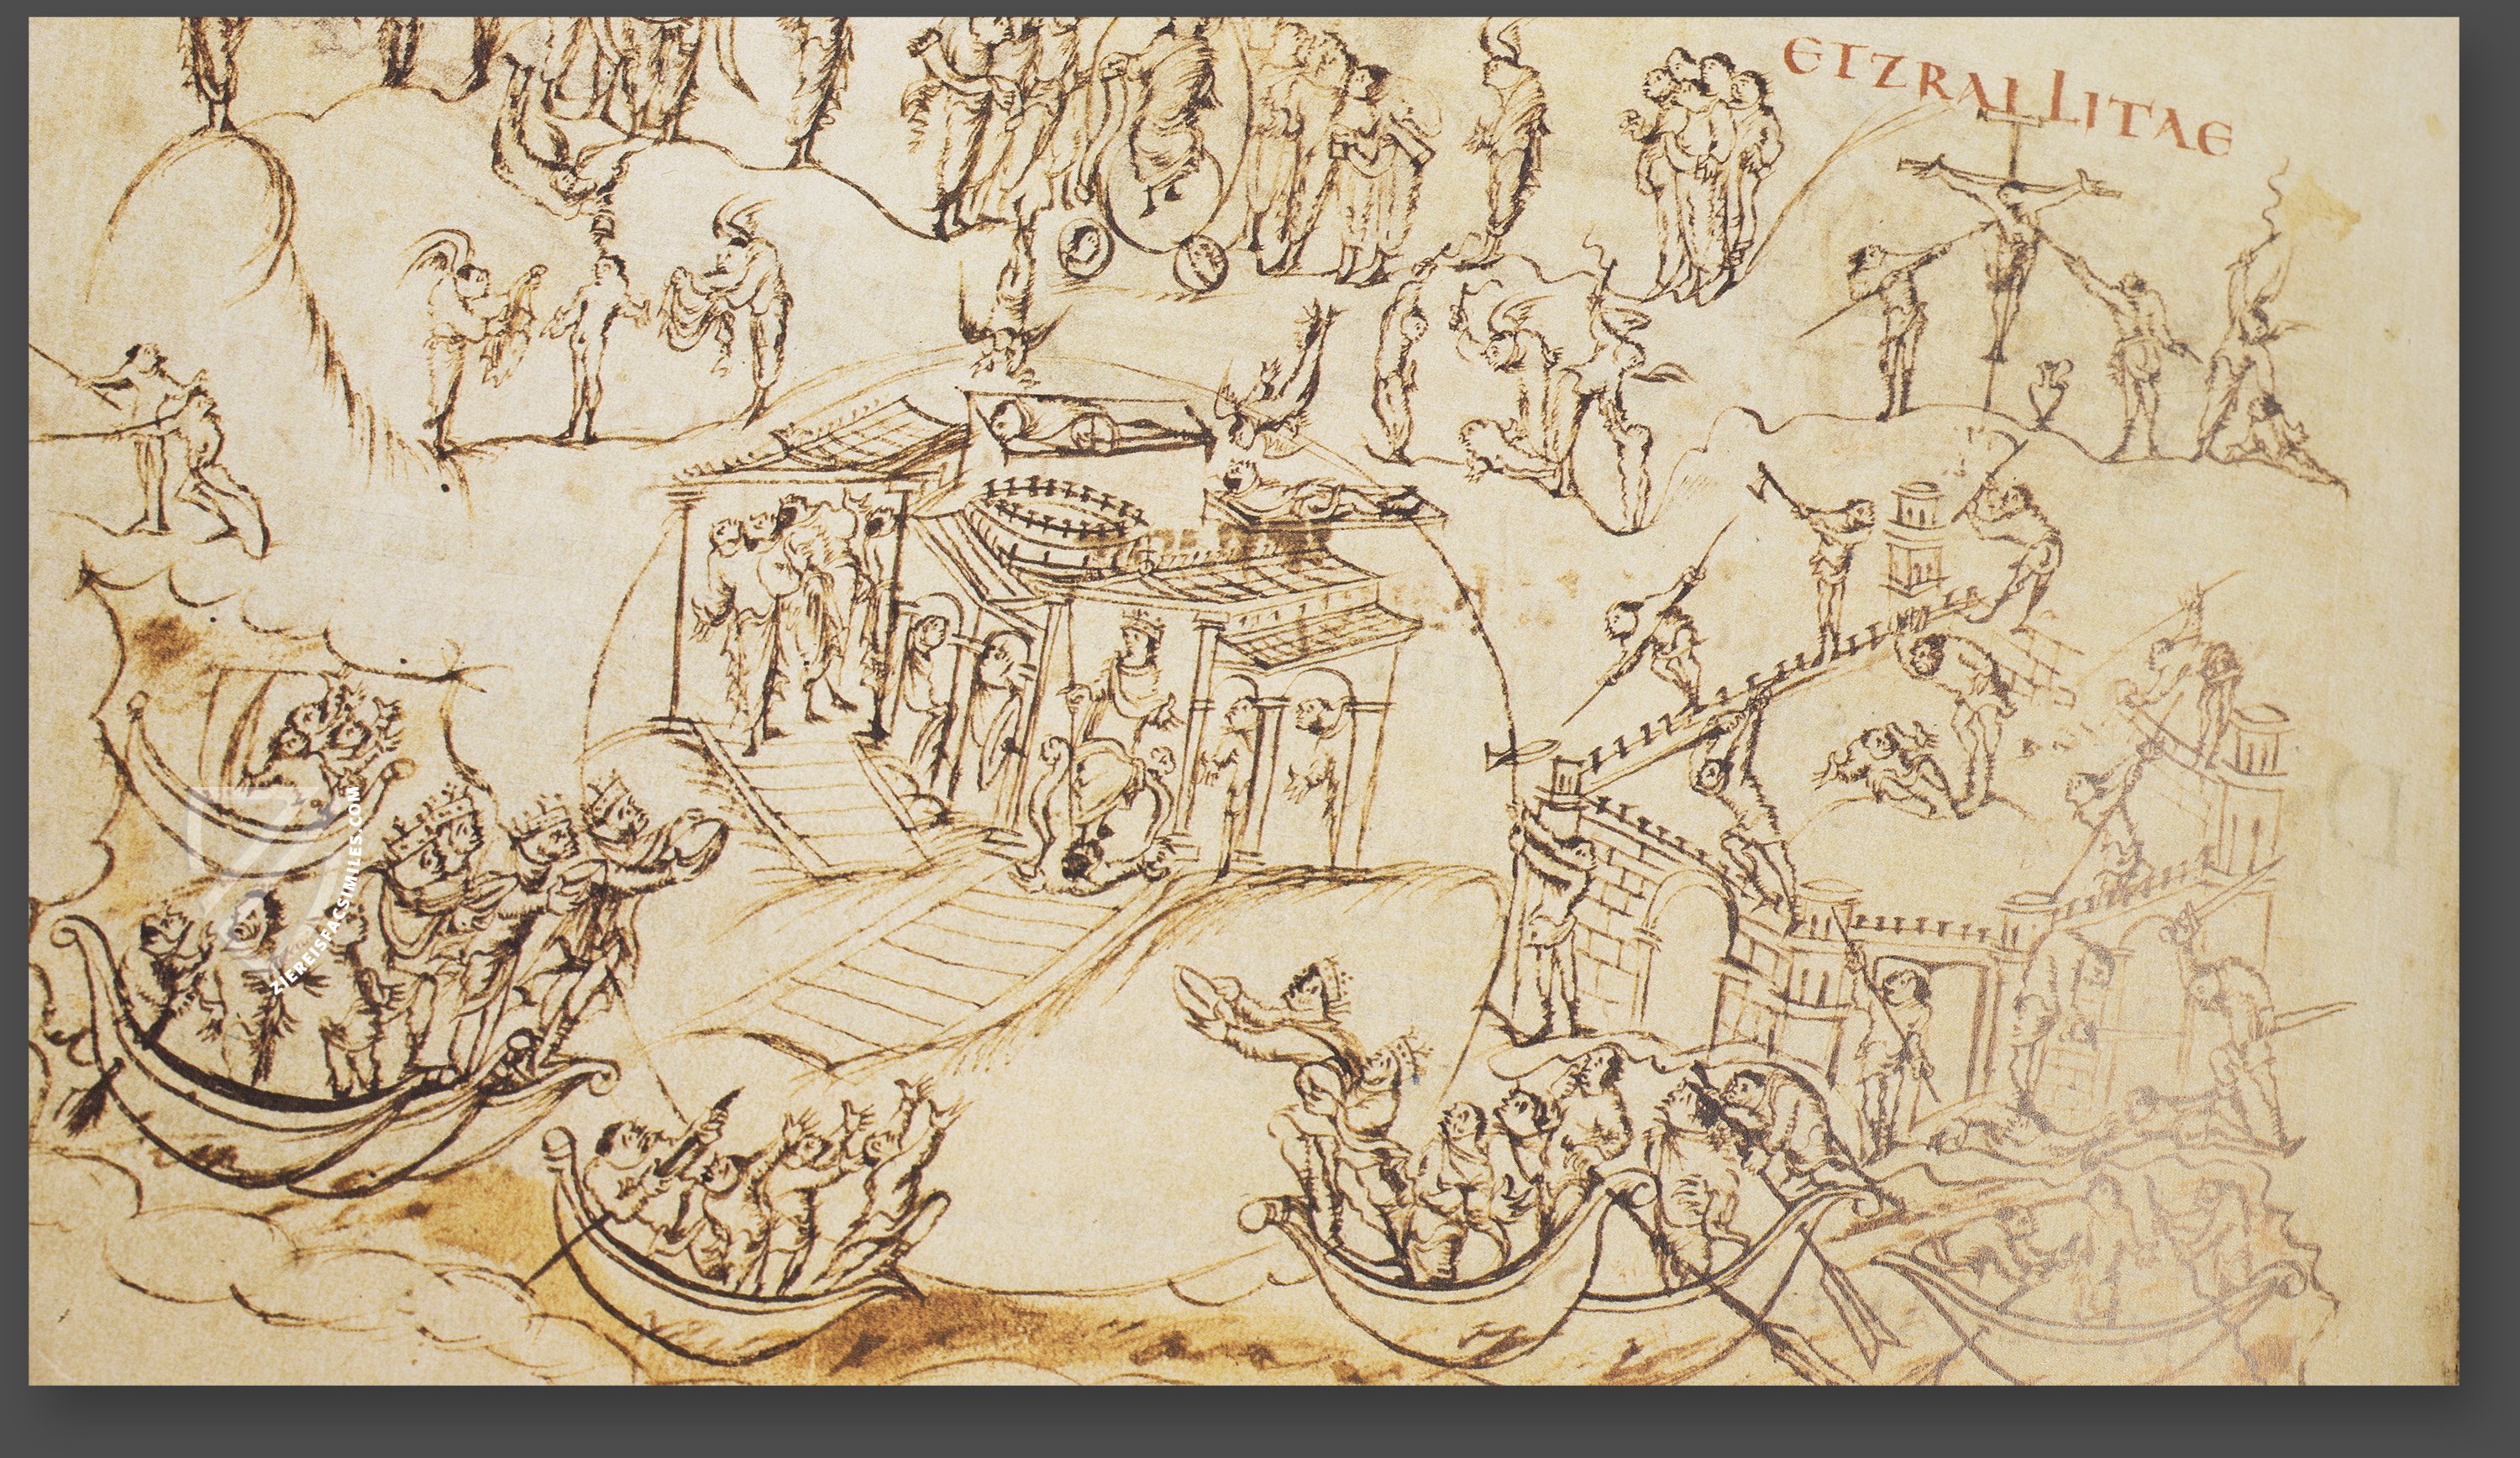 ETZRAELITAE
ZIEREISFACSIMILES.COM